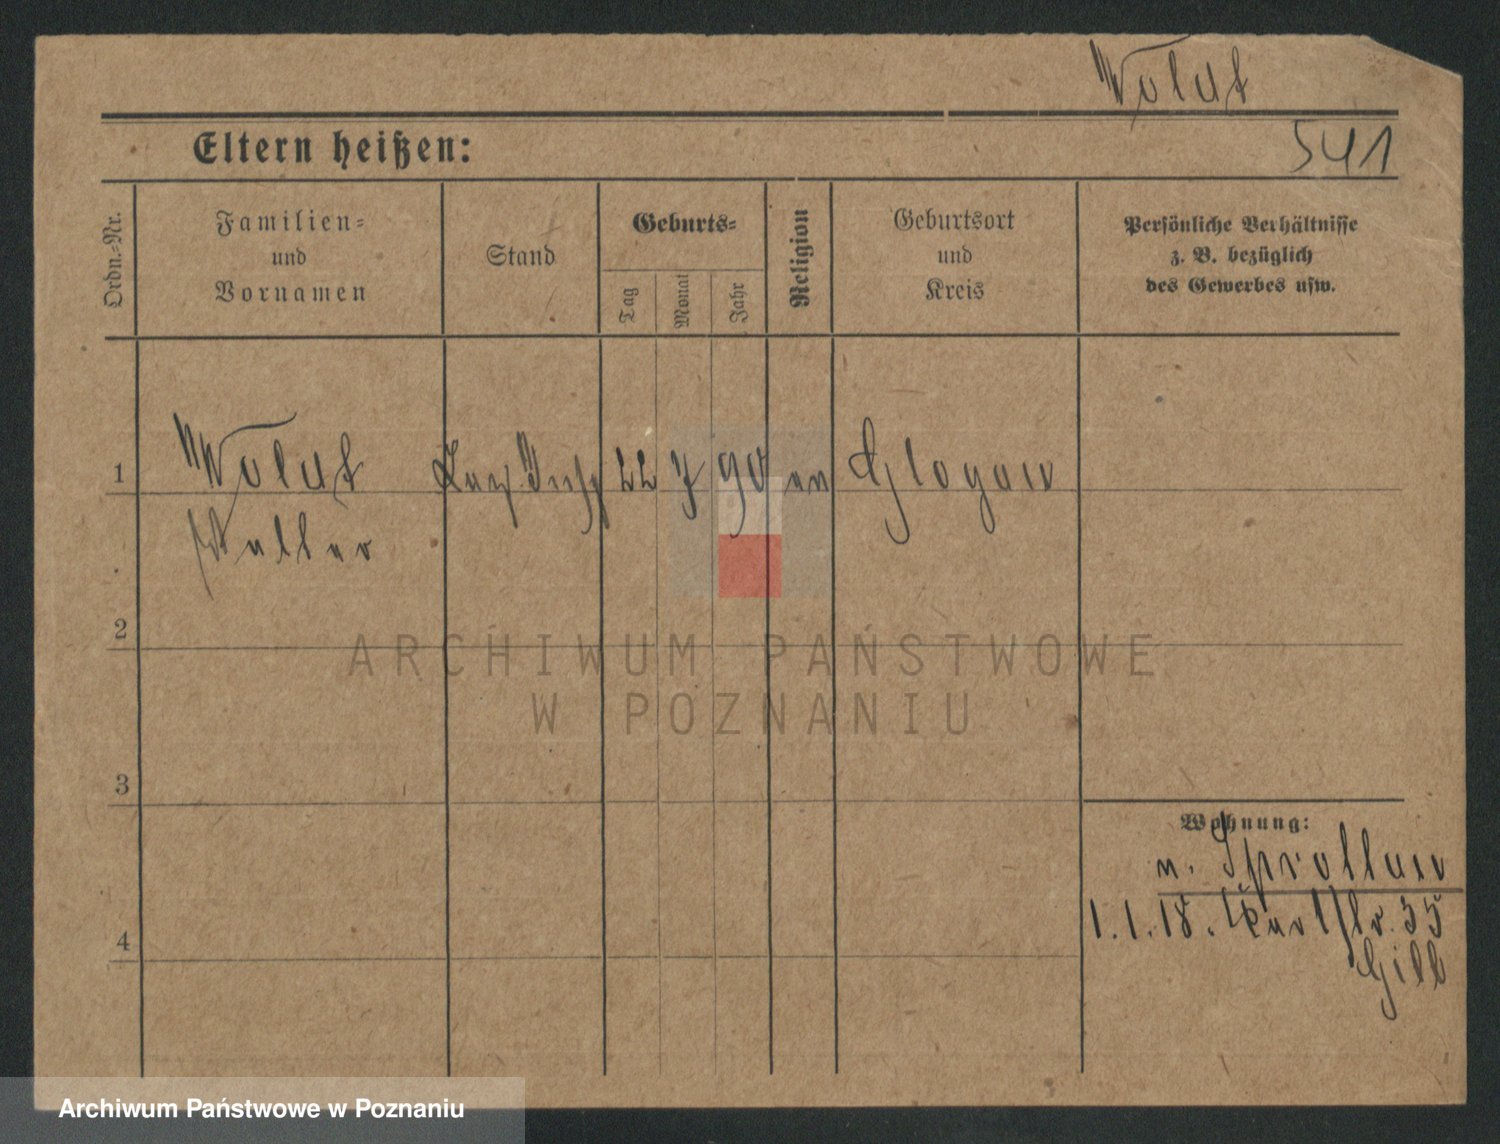 Wolut
541
Eltern heißen:
Ordn.-Nr.
Familien-
und
Vornamen
Stand
Geburts-
Tag
Monat
Jahr
Religion
Geburtsort
und
Kreis
Persönliche Verhältnisse
z. B. bezüglich
des Gewerbes usw.
1
Wolut
22
7
90
ev
Glogau
Walter
2
ARCHIWUM PAŃSTWOWE
W POZNANIU
3
Wohnung:
n. Sprottau
4
1.1.18. Karlstr. 35
Archiwum Państwowe w Poznaniu